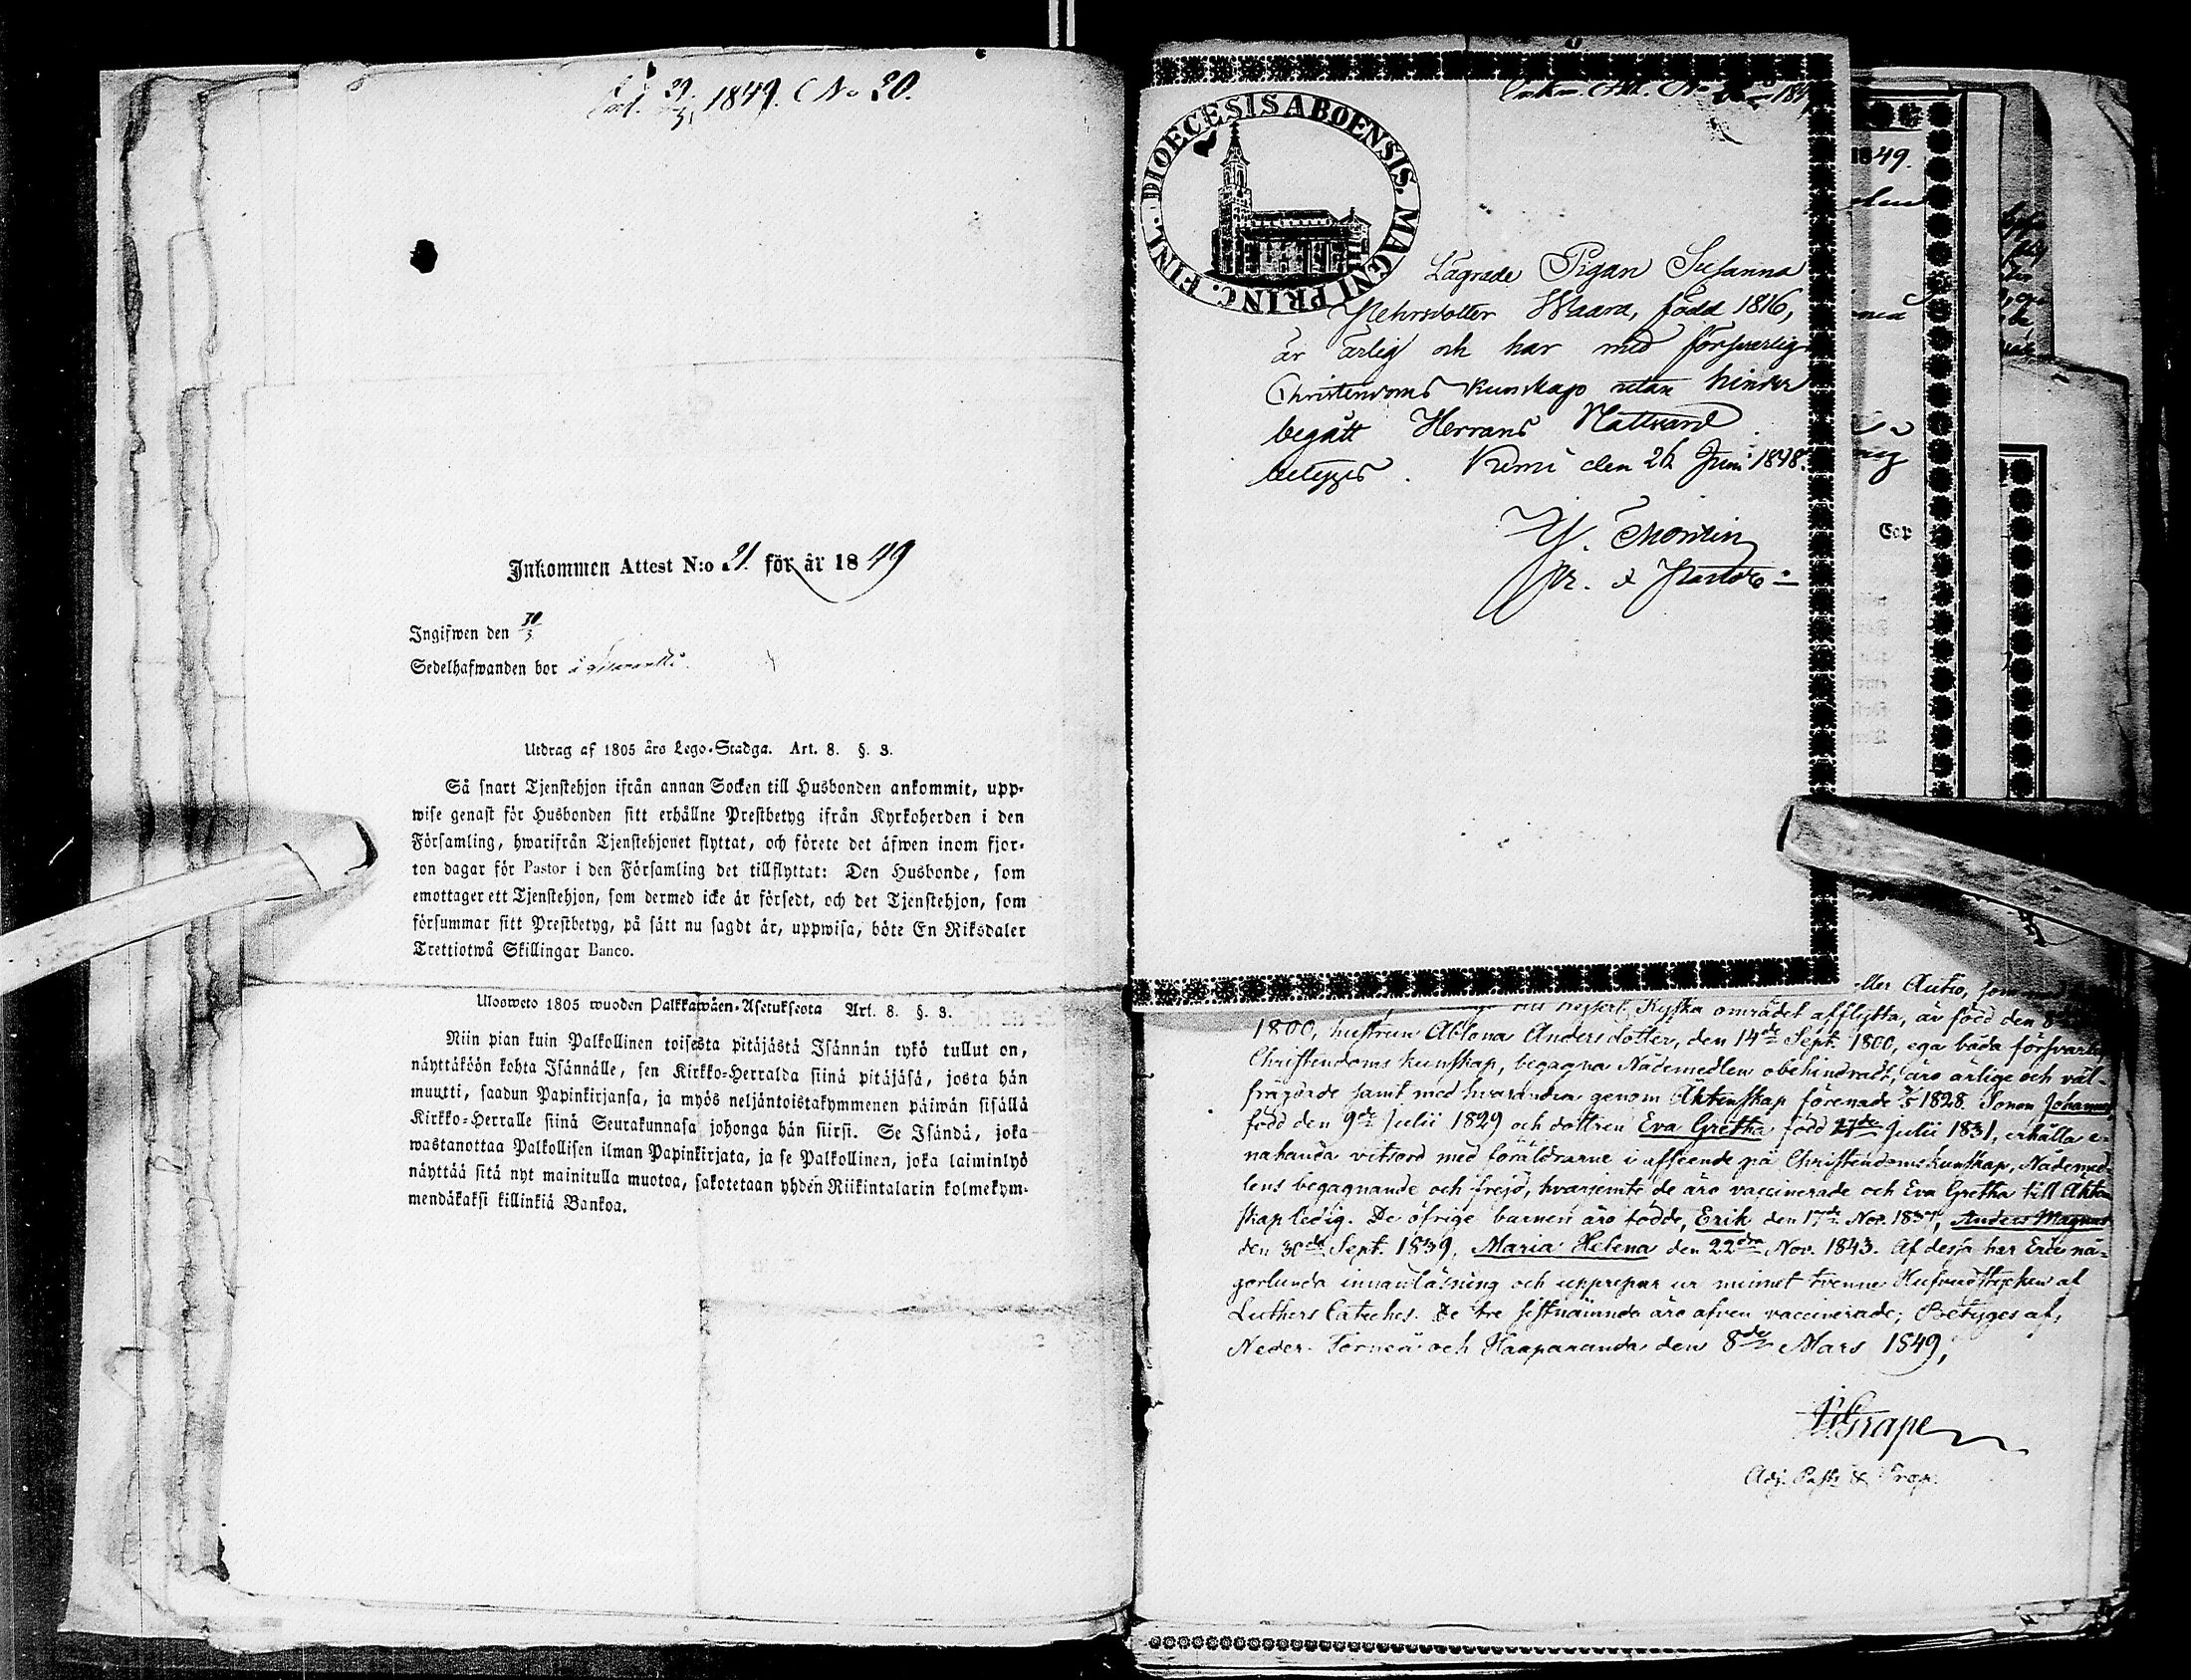 1849. No 20.
Inkommen Attest N:o 21. för år 1849
Ingifwen den 30/3
Sedelhafwanden bor å
Utdrag af 1805 års Lego-Stadga. Art. 8. §. 3.
Så snart Tjenstehjon ifrån annan Socken till Husbonden ankommit, upp-
wise genast för Husbonden sitt erhållne Prestbetyg ifrån Kyrkoherden i den
Församling, hwarifrån Tjenstehjonet flyttat, och förete det äfwen inom fjor-
ton dagar för Pastor i den Församling det tillflyttat: Den Husbonde, som
emottager ett Tjenstehjon, som dermed icke är försedt, och det Tjenstehjon, som
försummar sitt Prestbetyg, på sätt nu sagdt är, uppwisa, böte En Riksdaler
Trettiotwå Skillingar Banco.
Ulosweto 1805 wuoden Palkkawäen-Asetuksesta Art. 8. §. 3.
Niin pian kuin Palkollinen toisesta pitäjästä Isännän tykö tullut on,
näyttäköön kohta Isännälle, sen Kirkko-Herralda siinä pitäjäsä, josta hän
muutti, saadun Papinkirjansa, ja myös neljäntoistakymmenen päiwän sisällä
Kirkko-Herralle siinä Seurakunnasa johonga hän siirsi. Se Isändä, joka
wastanottaa Palkollisen ilman Papinkirjata, ja se Palkollinen, joka laiminlyö
näyttää sitä nyt mainitulla muotoa, sakotetaan yhden Riikintalarin kolmekym-
mendäkaksi killinkiä Bankoa.
FINL. DIOECESIS ABOENSIS. MAGNI PRINC.
Lägrade Pigan Susanna
Pehrsdotter Waara, född 1816,
är ärlig och har med försvarlig
Christendoms kunskap utan hinder
begått Herrans Nattvard
betygas. Kemi den 26 Juni 1848.
1849.
Cop
eller Autio, som med
Ryska området afflytta, är född den 8de
1800, hustrun Ablona Andersdotter, den 14de Sept. 1800, ega båda försvarlig
Christendoms kunskap, begagna Nådemedlen obehindradt, äro ärlige och väl-
frägdade samt med hvarandra genom Äktenskap förenade 1828. Sonen Johannes,
född den 9de Julii 1829 och dottren Eva Gretha född 17de Julii 1831, erhålla e-
nahanda vitsord med föräldrarne i afseende på Christendomskunskap, Nådemed-
lens begagnande och frejd, hvarjemte de äro vaccinerade och Eva Gretha till Äkten-
skap ledig. De öfrige barnen äro födde, Erik den 17de Nov. 1837, Anders Magnus
den 30de Sept. 1839, Maria Helena den 22dra Nov. 1843. Af dessa har Erik nå-
gorlunda innanläsning och upprepar ur minnet trenne Hufvudstycken af
Luthers Cateches. De tre sistnämnda äro äfven vaccinerade; Betyges af,
Neder-Torneå och Haaparanda den 8de Mars 1849,
Grape
Adj. Past. &